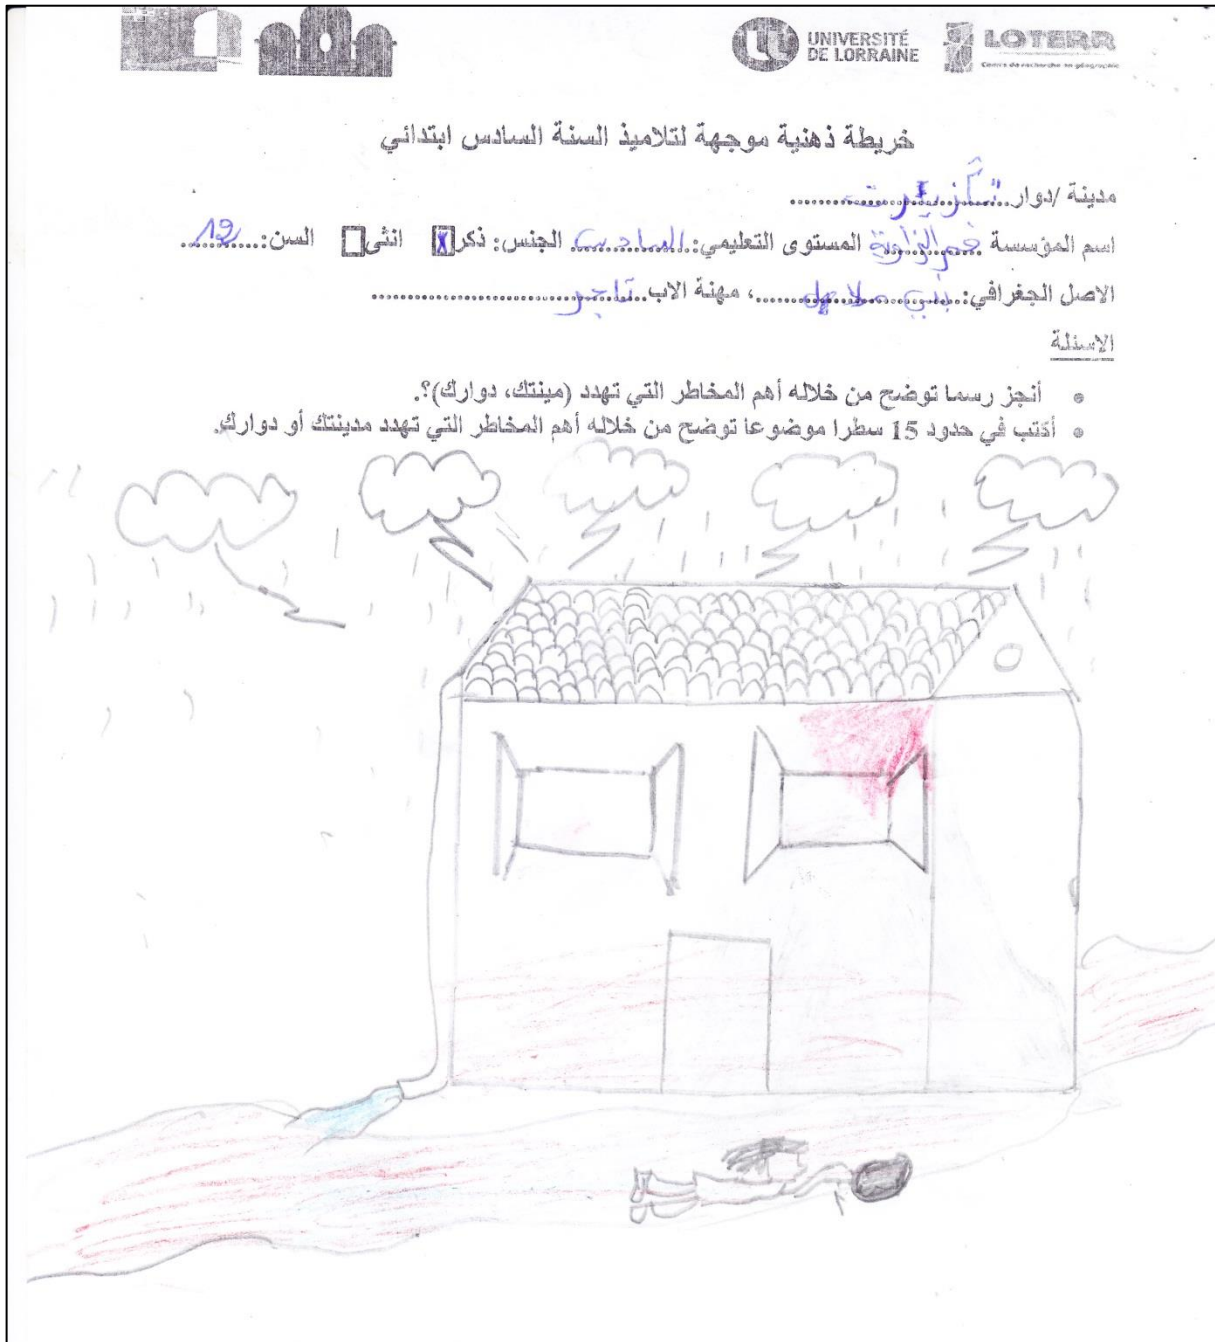 UNIVERSITÉ
DE LORRAINE
LOTERR
Centre de recherche en géographie
خريطة ذهنية موجهة لتلاميذ السنة السادس ابتدائي
مدينة /دوار
اسم المؤسسة المستوى التعليمي: السادس الجنس: ذكر X انثى السن: 12
الاصل الجغرافي: بني ملال، مهنة الاب تاجر
الاسئلة
• أنجز رسما توضح من خلاله أهم المخاطر التي تهدد (مينتك، دوارك)؟.
• أكتب في حدود 15 سطرا موضوعا توضح من خلاله أهم المخاطر التي تهدد مدينتك أو دوارك.